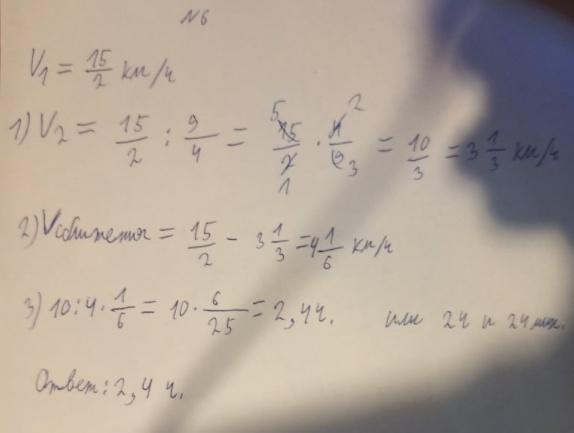 №6
V₁ = 15/2 км/ч
1) V₂ = 15/2 : 9/4 = 15/2 · 4/9 = 10/3 = 3 1/3 км/ч
2) Vсближения = 15/2 - 3 1/3 = 4 1/6 км/ч
3) 10 : 4 · 1/6 = 10 · 6/25 = 2,4 ч. или 2 ч и 24 мин.
Ответ: 2,4 ч.